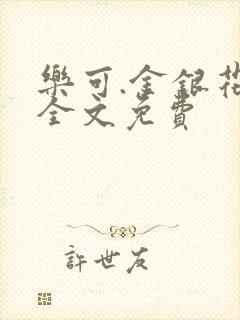 樂可.金銀花
全文免費
許世友